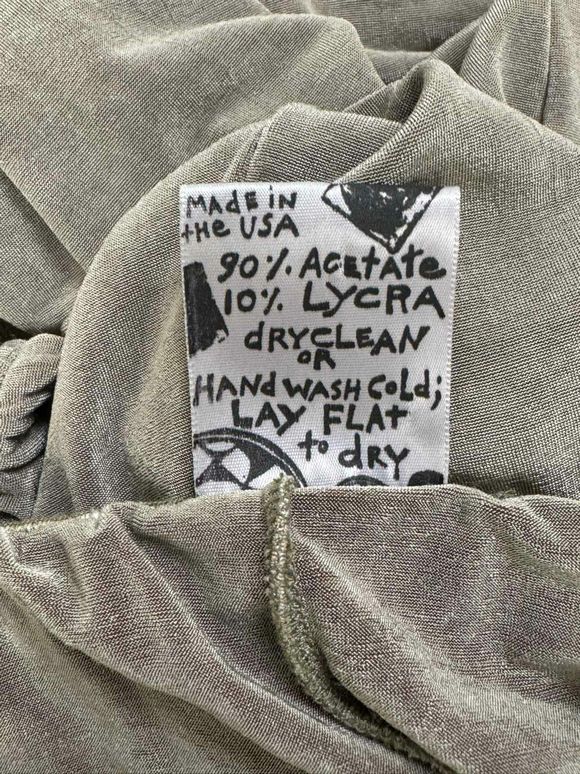 MADE iN
tHE USA
90% ACEtAtE
10% LYCRA
dRYCLEAN
OR
HANd WASH COLd;
LAY FLAt
to dRY